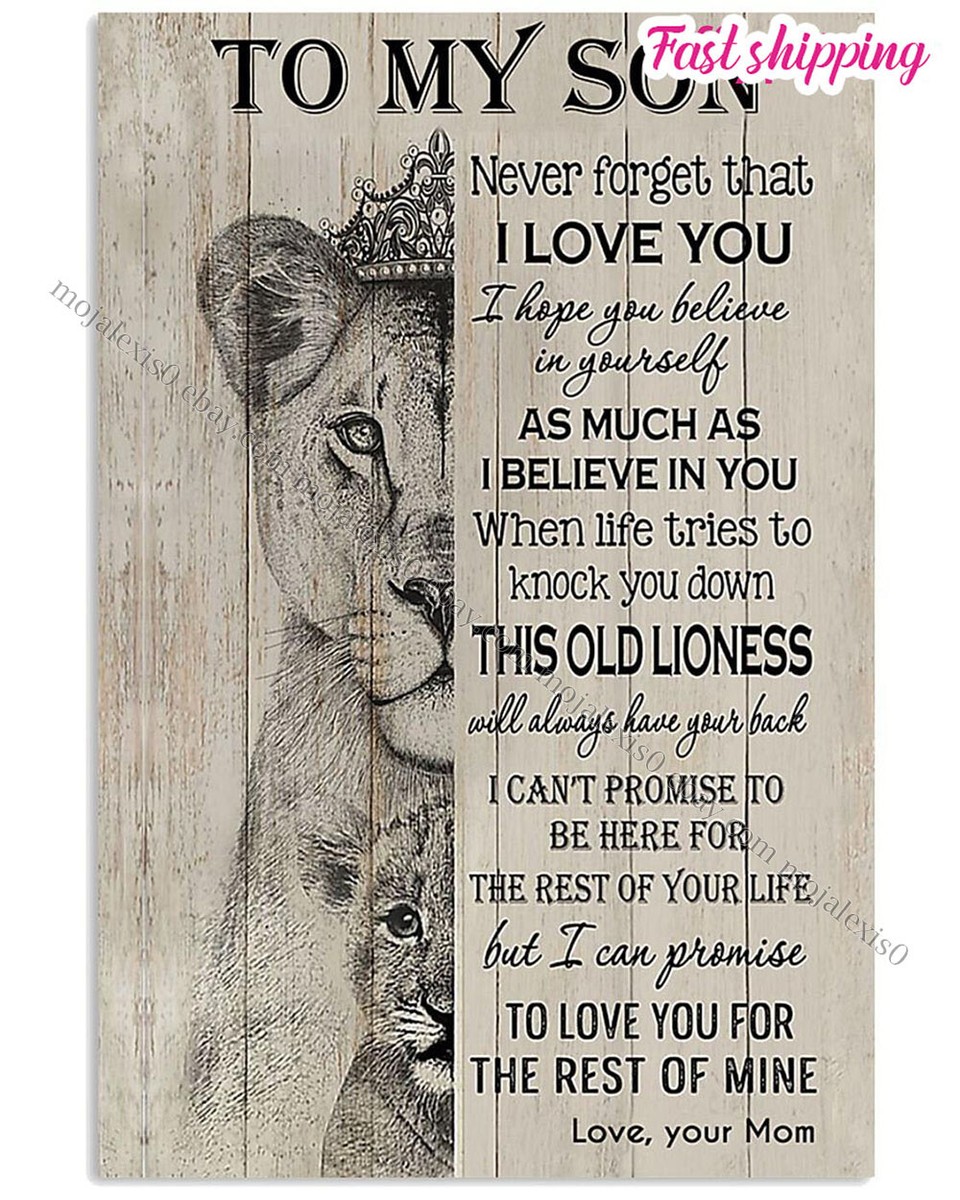 TO MY SON
Fast shipping
Never forget that
I LOVE YOU
I hope you believe
in yourself
AS MUCH AS
I BELIEVE IN YOU
When life tries to
knock you down
THIS OLD LIONESS
will always have your back
I CAN'T PROMISE TO
BE HERE FOR
THE REST OF YOUR LIFE
but I can promise
TO LOVE YOU FOR
THE REST OF MINE
Love, your Mom
mojalexis0 ebay.com mojalexis0 ebay.com mojalexis0 ebay.com mojalexis0